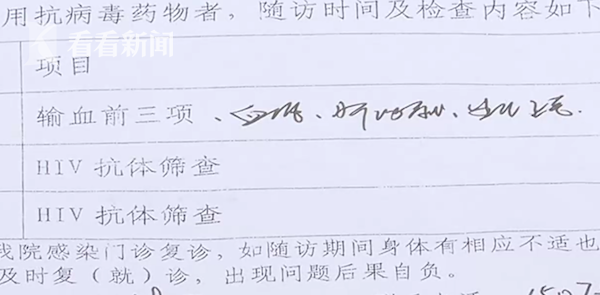 用抗病毒药物者，随访时间及检查内容如下
看看新闻
项目
输血前三项、血常、肝功
HIV 抗体筛查
HIV 抗体筛查
我院感染门诊复诊，如随访期间身体有相应不适也
及时复（就）诊，出现问题后果自负。